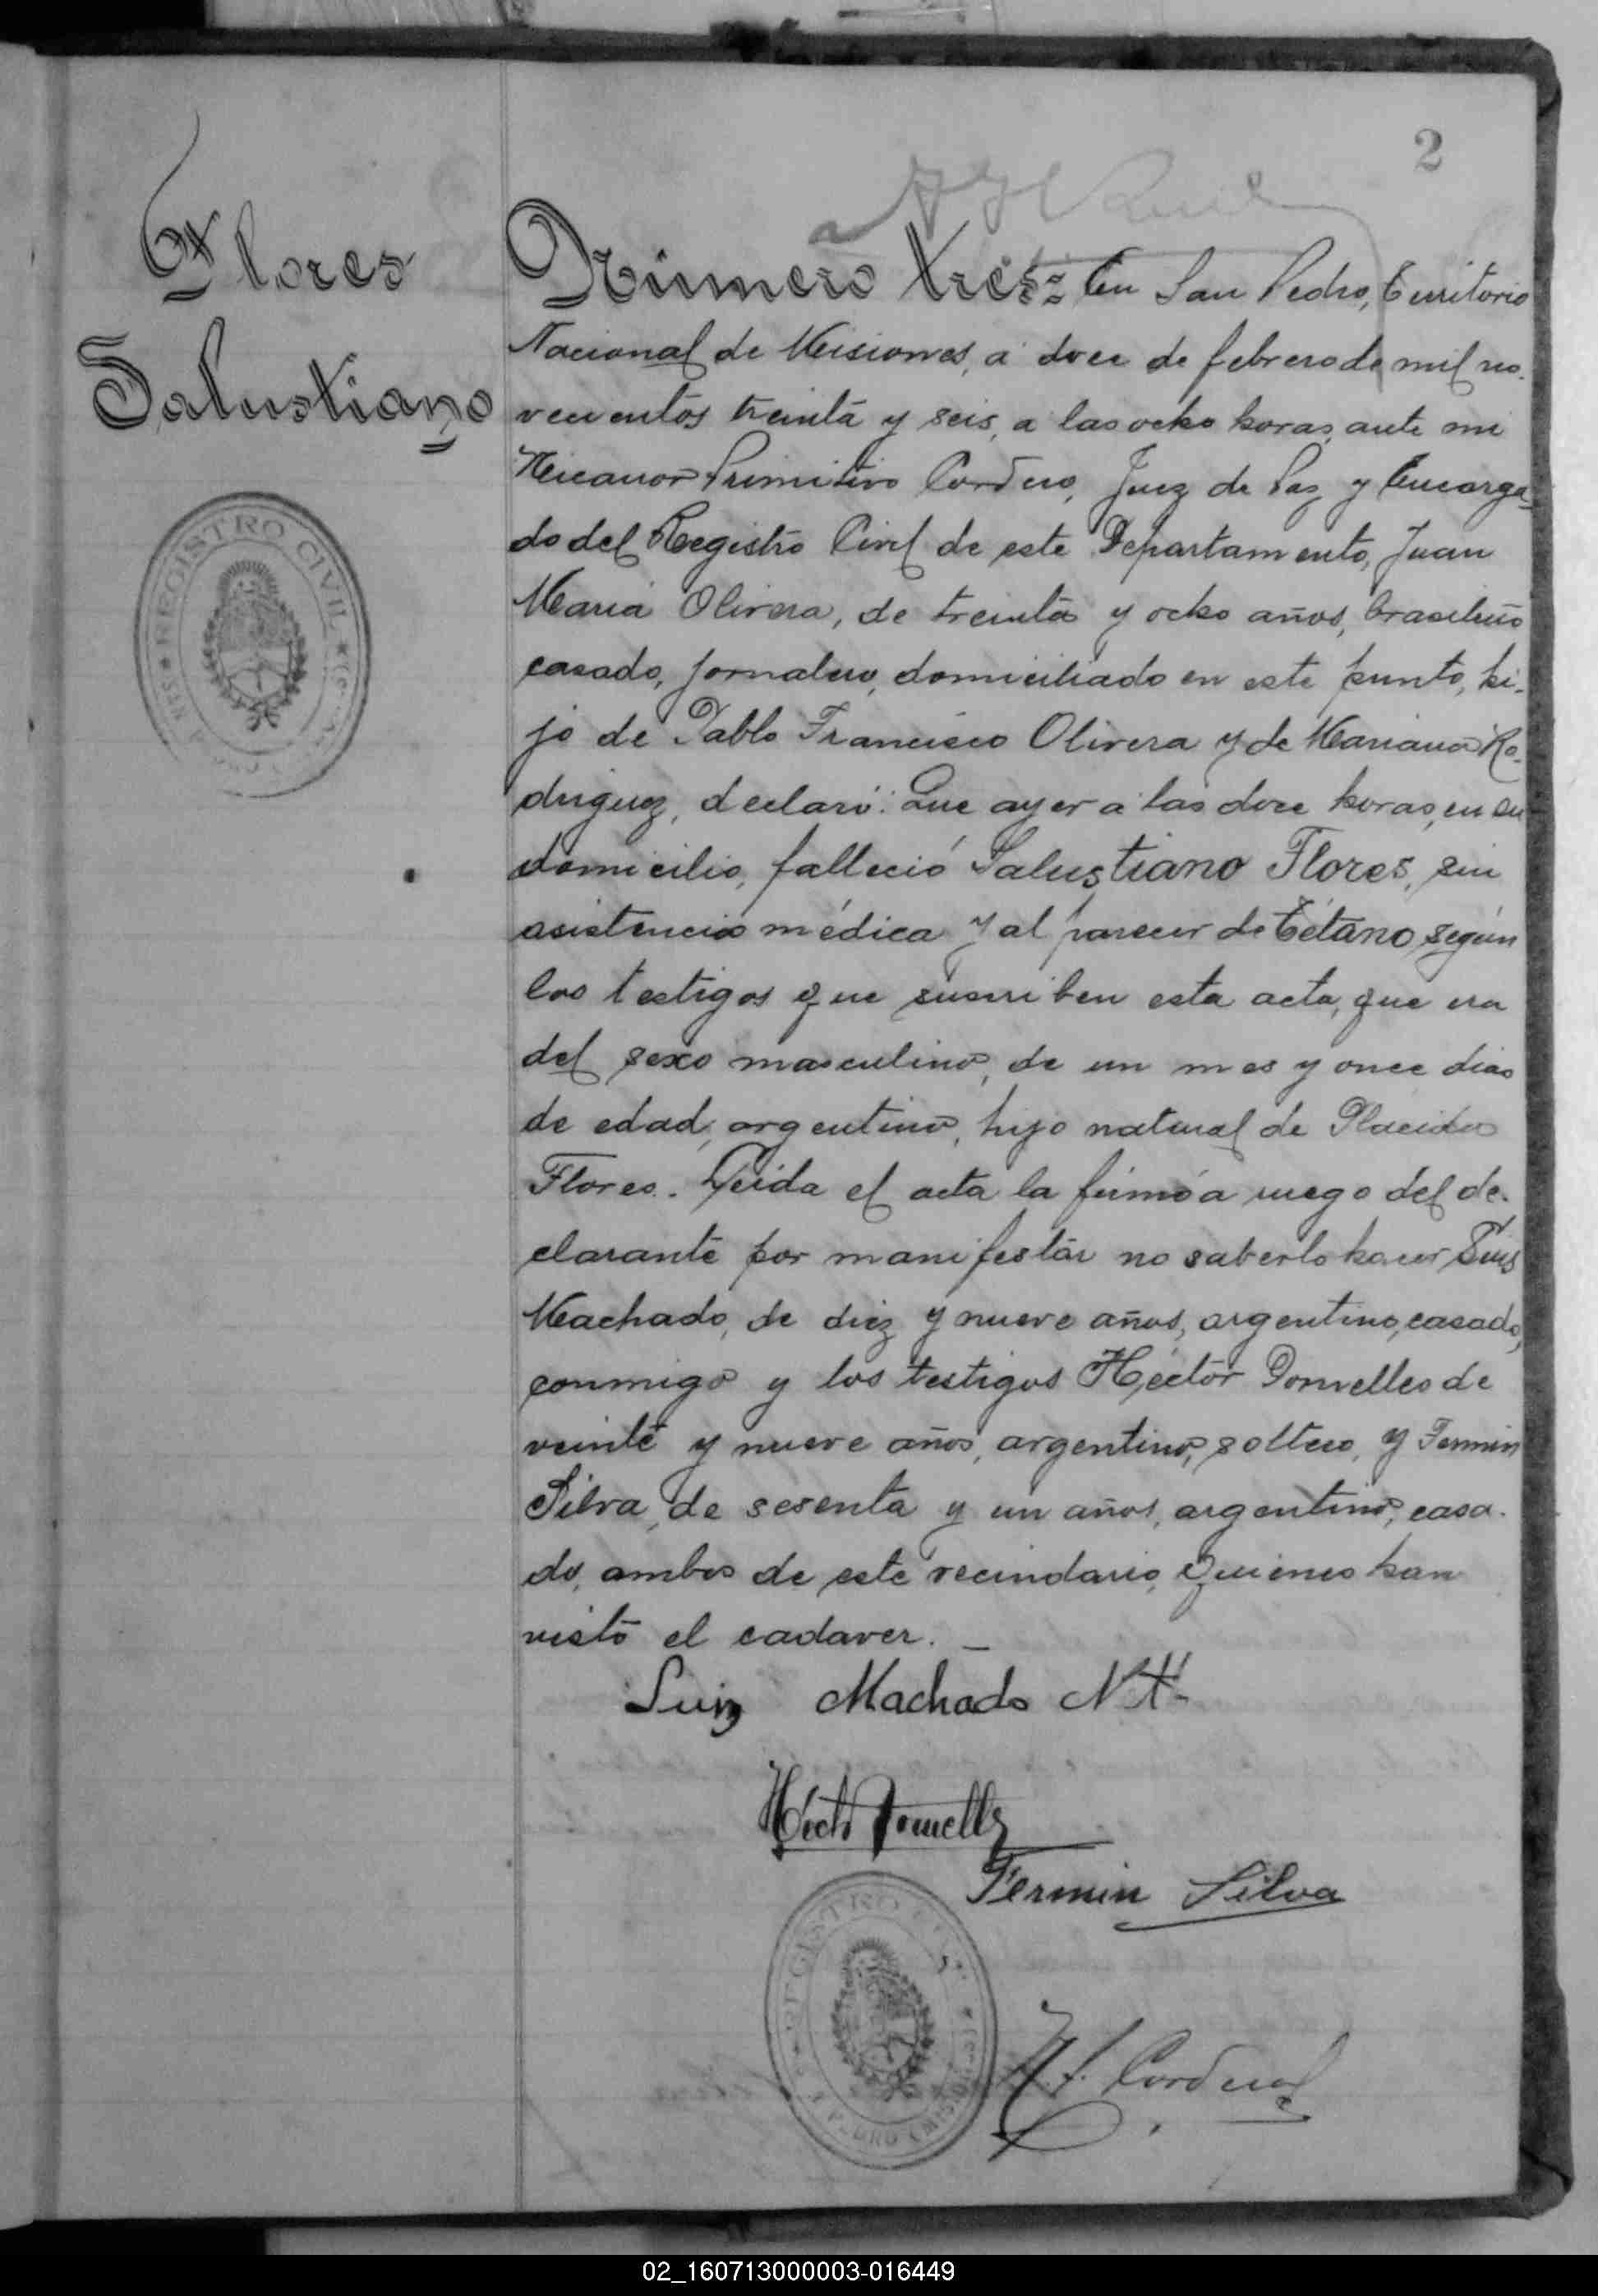 2
Flores
Salustiano
REGISTRO CIVIL
Número tres: En San Pedro, Territorio
Nacional de Misiones, a doce de febrero de mil no-
vecientos treinta y seis, a las ocho horas, ante mi
Nicanor Primitivo Cordero, Juez de Paz y Encarga-
do del Registro Civil de este Departamento, Juan
Maria Olivera, de treinta y ocho años, brasileño
casado, jornalero, domiciliado en este punto, hi-
jo de Pablo Francisco Olivera y de Mariana Ro-
driguez, declaró: Que ayer a las doce horas, en su
domicilio, falleció Salustiano Flores, sin
asistencia médica y al parecer de Tétano, según
los testigos que suscriben esta acta, que era
del sexo masculino, de un mes y once dias
de edad, argentino, hijo natural de Placida
Flores. Leida el acta la firmó a ruego del de-
clarante por manifestar no saberlo hacer Luis
Machado, de diez y nueve años, argentino, casado,
conmigo y los testigos Héctor Donvelles de
veinte y nueve años, argentino, soltero, y Fermin
Silva, de sesenta y un años, argentino, casa-
do, ambos de este vecindario, quienes han
visto el cadaver. _
Luiz Machado
Fermin Silva
REGISTRO
N. P. Cordero
02_160713000003-016449